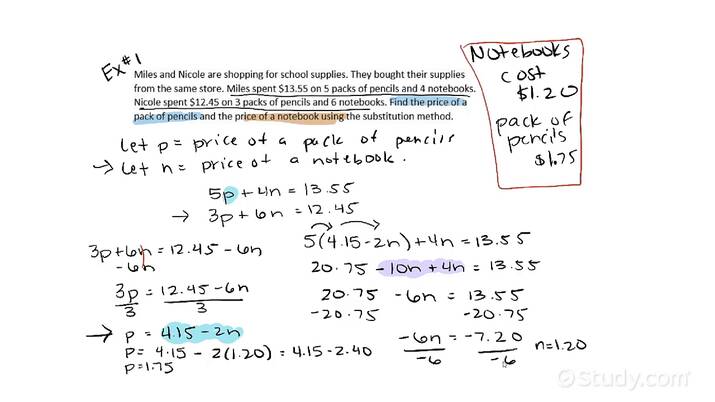 Ex#1
Miles and Nicole are shopping for school supplies. They bought their supplies
from the same store. Miles spent $13.55 on 5 packs of pencils and 4 notebooks.
Nicole spent $12.45 on 3 packs of pencils and 6 notebooks. Find the price of a
pack of pencils and the price of a notebook using the substitution method.
Let p = price of a pack of pencils
→ Let n = price of a notebook.
5p + 4n = 13.55
→ 3p + 6n = 12.45
3p + 6n = 12.45 - 6n
-6n
3p = 12.45 - 6n
3 3
→ p = 4.15 - 2n
P = 4.15 - 2(1.20) = 4.15 - 2.40
P = 1.75
5(4.15 - 2n) + 4n = 13.55
20.75 - 10n + 4n = 13.55
20.75 - 6n = 13.55
-20.75 -20.75
-6n = -7.20
-6 -6
n = 1.20
Notebooks
cost
$1.20
pack of
pencils
$1.75
©Study.com